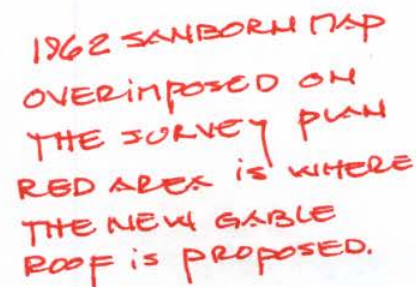 1962 SANBORN MAP
OVERIMPOSED ON
THE SURVEY PLAN
RED AREA is WHERE
THE NEW GABLE
ROOF is PROPOSED.